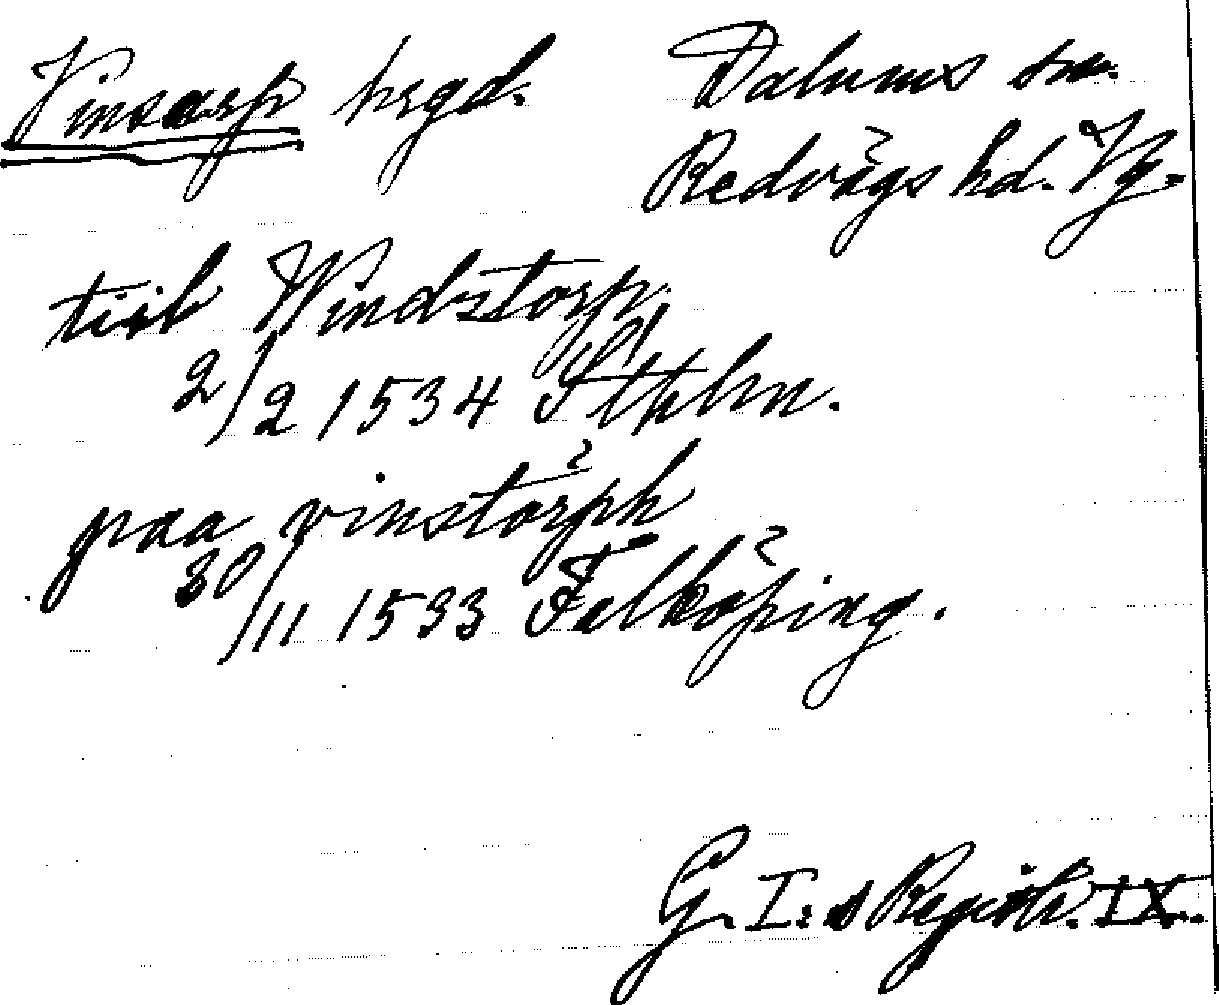 Vinsarp hrgd. Dalums sn.
Redvägs hd. Vg.
tiil Windstorp
2/2 1534 Sthlm.
paa vinstörph
30/11 1533 Felköping.
G. I:s Registr. IX.